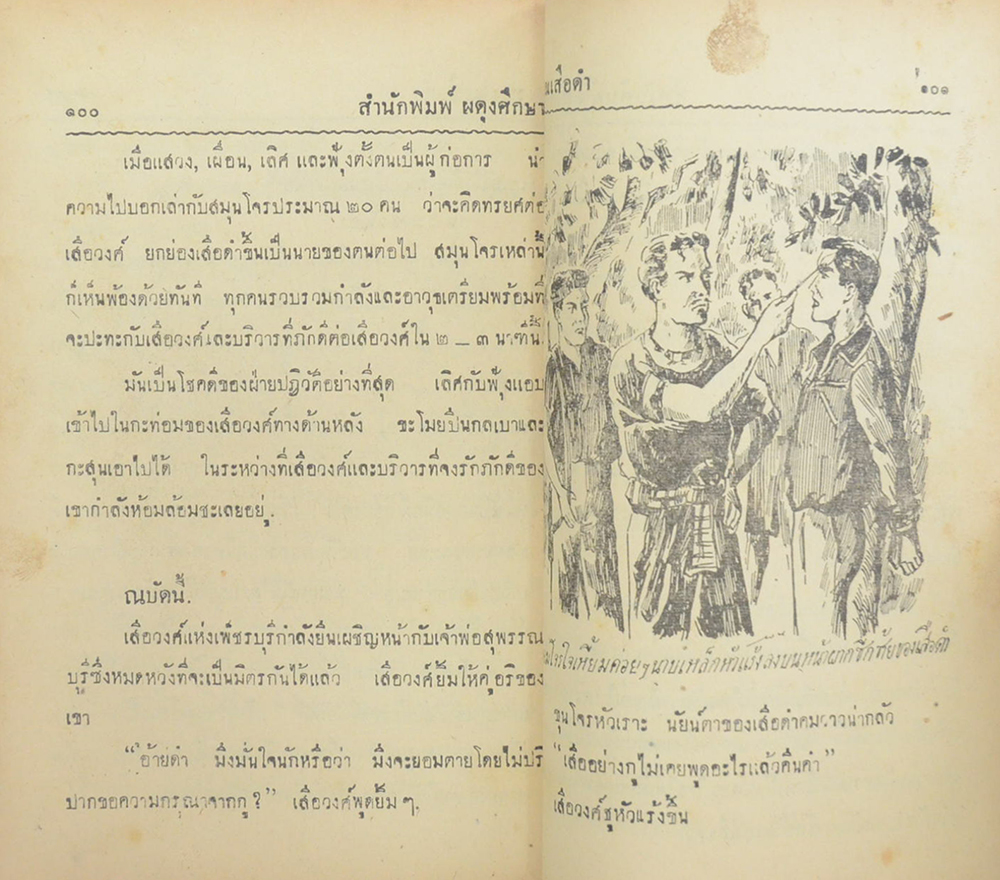 ๑๐๐ สำนักพิมพ์ ผดุงศึกษา
เมื่อแสวง, เผื่อน, เลิศ และฟุ้งตั้งตนเป็นผู้ก่อการ นำ
ความไปบอกเล่ากับสมุนโจรประมาณ ๒๐ คน ว่าจะคิดทรยศต่อ
เสือวงศ์ ยกย่องเสือดำขึ้นเป็นนายของตนต่อไป สมุนโจรเหล่านี้
ก็เห็นพ้องด้วยทันที ทุกคนรวบรวมกำลังและอาวุธเตรียมพร้อมที่
จะปะทะกับเสือวงศ์และบริวารที่ภักดีต่อเสือวงศ์ใน ๒ — ๓ นาฑีนี้
มันเป็นโชคดีของฝ่ายปฏิวัติอย่างที่สุด เลิศกับฟุ้งแอบ
เข้าไปในกะท่อมของเสือวงศ์ทางด้านหลัง ขะโมยปืนกลเบาและ
กะสุนเอาไปได้ ในระหว่างที่เสือวงศ์และบริวารที่จงรักภักดีของ
เขากำลังห้อมล้อมชะเลยอยู่.
ณบัดนี้.
เสือวงศ์แห่งเพ็ชรบุรีกำลังยืนเผชิญหน้ากับเจ้าพ่อสุพรรณ
บุรีซึ่งหมดหวังที่จะเป็นมิตรกันได้แล้ว เสือวงศ์ยิ้มให้คู่อริของ
เขา
“อ้ายดำ มึงมั่นใจนักหรือว่า มึงจะยอมตายโดยไม่ปริ
ปากขอความกรุณาจากกู ?” เสือวงศ์พูดยิ้ม ๆ.
เสือดำ ๑๐๑
โจรใจเหี้ยมค่อย ๆ นาบเหล็กหัวแร้งลงบนหน้าผากซีกซ้ายของเสือดำ
ขุนโจรหัวเราะ นัยน์ตาของเสือดำคมวาวน่ากลัว
“เสืออย่างกูไม่เคยพูดอะไรแล้วคืนคำ”
เสือวงศ์ชูหัวแร้งขึ้น